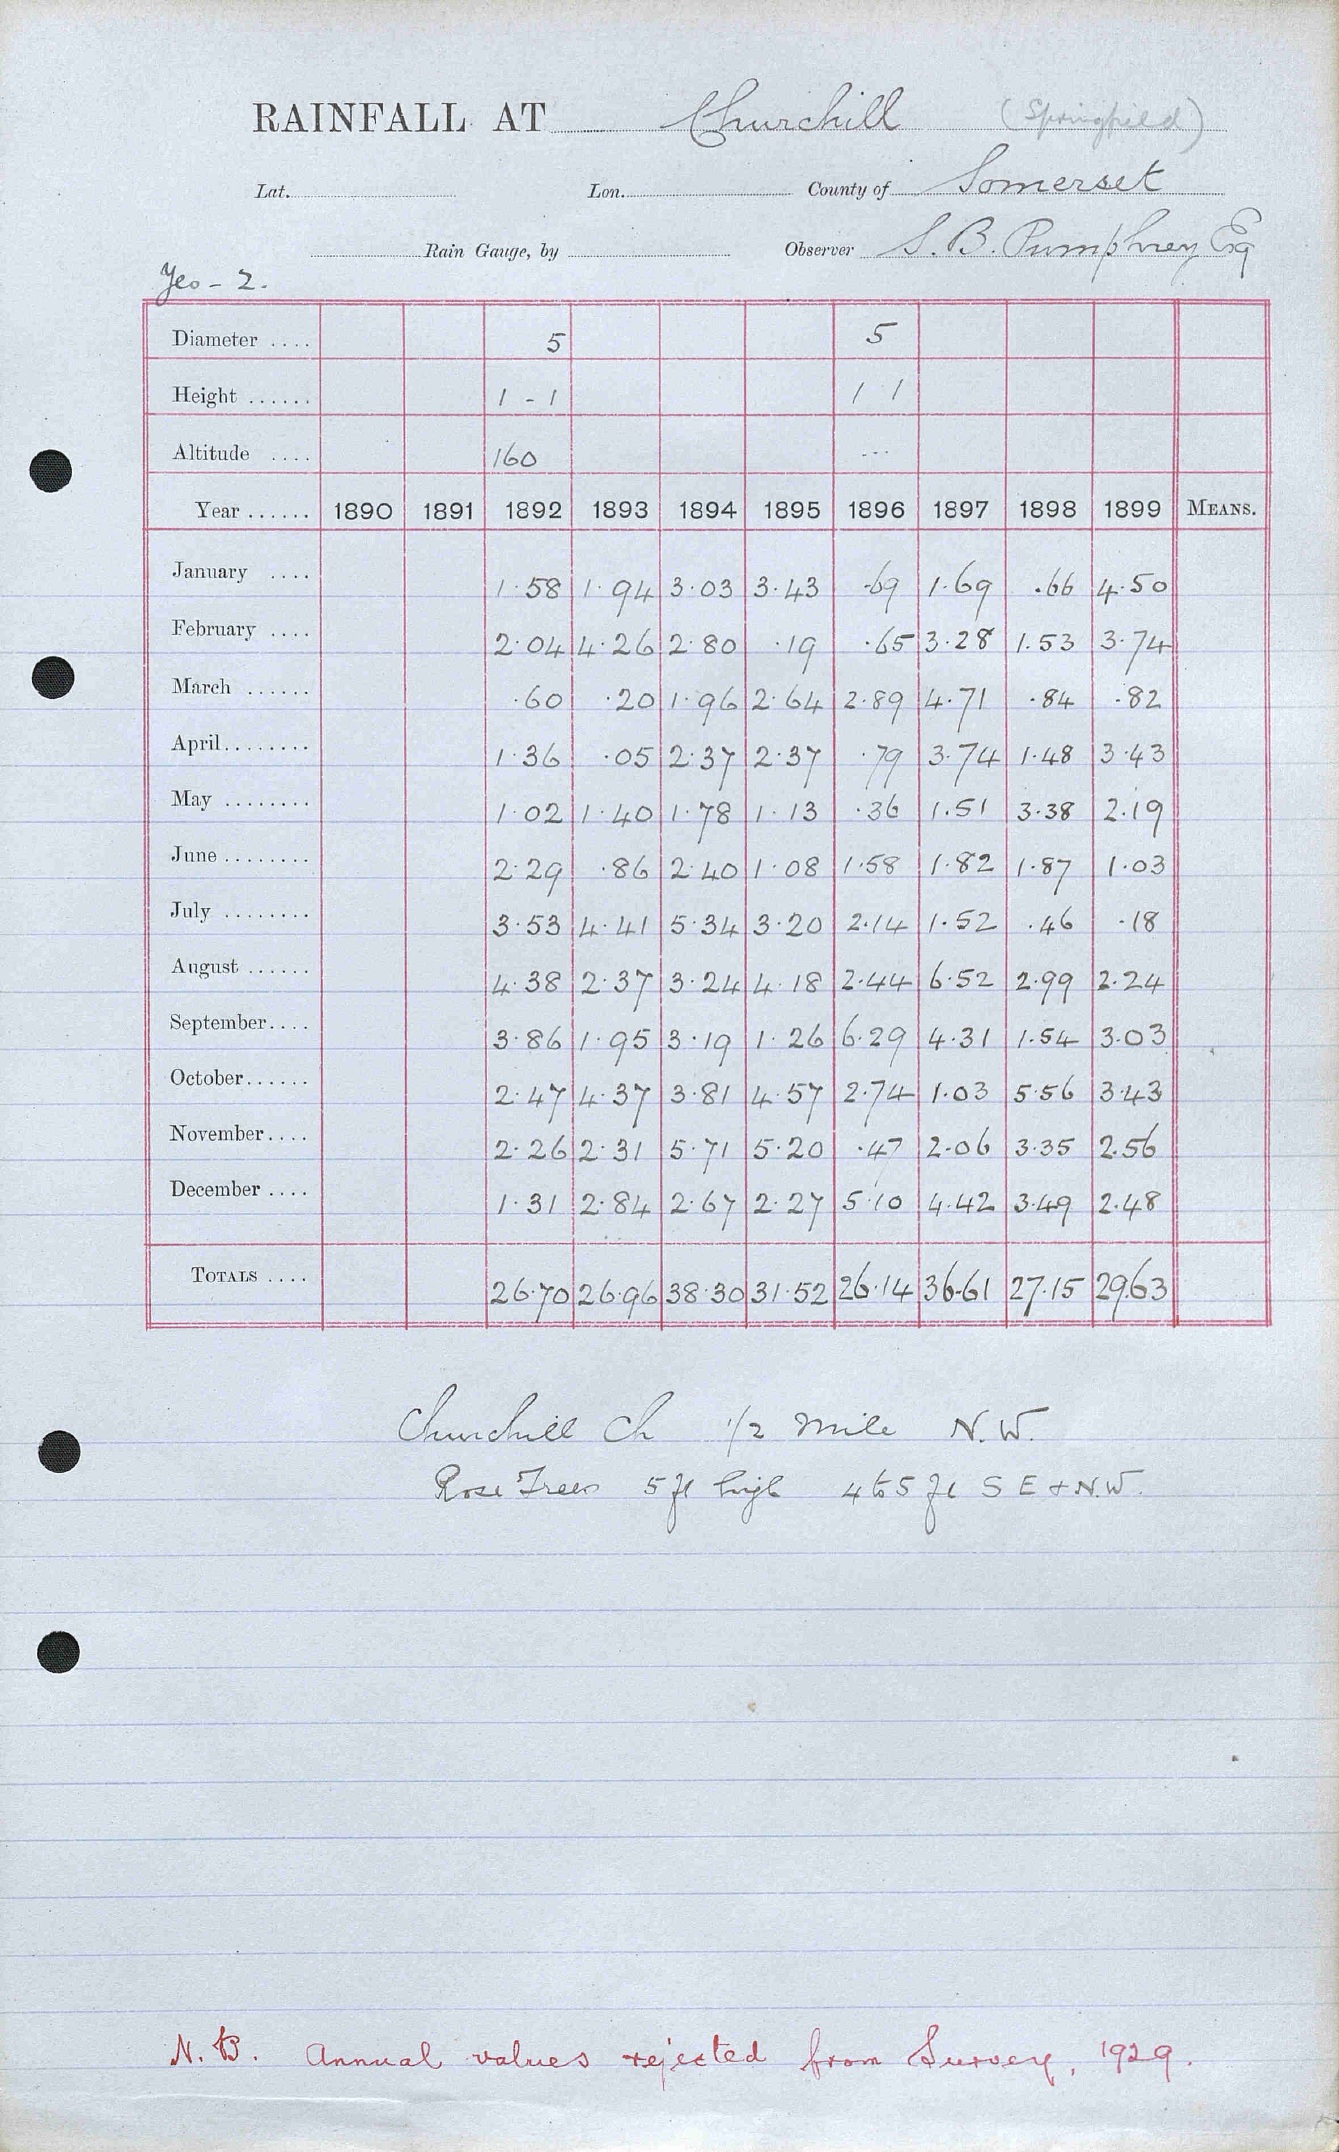 RAINFALL AT Churchill (Springfield)
Lat. Lon. County of Somerset
Rain Gauge, by Observer S. B. Pumphrey Esq
Yeo - 2.
Diameter .... 5 5
Height ...... 1 - 1 1 1
Altitude .... 160 ...
Year ...... 1890 1891 1892 1893 1894 1895 1896 1897 1898 1899 MEANS.
January .... 1.58 1.94 3.03 3.43 .69 1.69 .66 4.50
February .... 2.04 4.26 2.80 .19 .65 3.28 1.53 3.74
March ...... .60 .20 1.96 2.64 2.89 4.71 .84 .82
April........ 1.36 .05 2.37 2.37 .79 3.74 1.48 3.43
May ........ 1.02 1.40 1.78 1.13 .36 1.51 3.38 2.19
June ........ 2.29 .86 2.40 1.08 1.58 1.82 1.87 1.03
July ........ 3.53 4.41 5.34 3.20 2.14 1.52 .46 .18
August ...... 4.38 2.37 3.24 4.18 2.44 6.52 2.99 2.24
September.... 3.86 1.95 3.19 1.26 6.29 4.31 1.54 3.03
October...... 2.47 4.37 3.81 4.57 2.74 1.03 5.56 3.43
November.... 2.26 2.31 5.71 5.20 .47 2.06 3.35 2.56
December .... 1.31 2.84 2.67 2.27 5.10 4.42 3.49 2.48
TOTALS .... 26.70 26.96 38.30 31.52 26.14 36.61 27.15 29.63
Churchill Ch 1/2 Mile N.W.
Rose Trees 5 ft high 4 to 5 ft S E + N.W.
N.B. Annual values rejected from Survey, 1929.